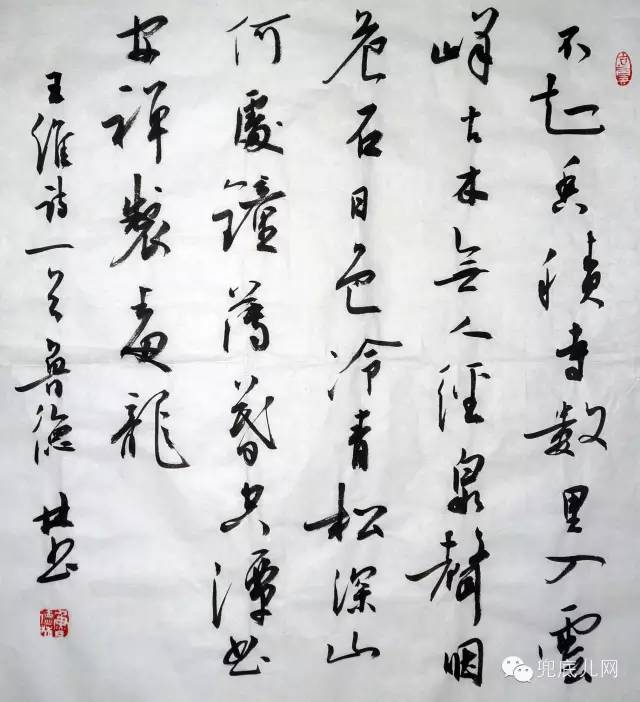 不知香積寺数里入雲
峰古木無人徑泉聲咽
危石日色冷青松深山
何處鐘薄暮空潭曲
安禪製毒龍
王維詩一首魯德林书
兜底儿网